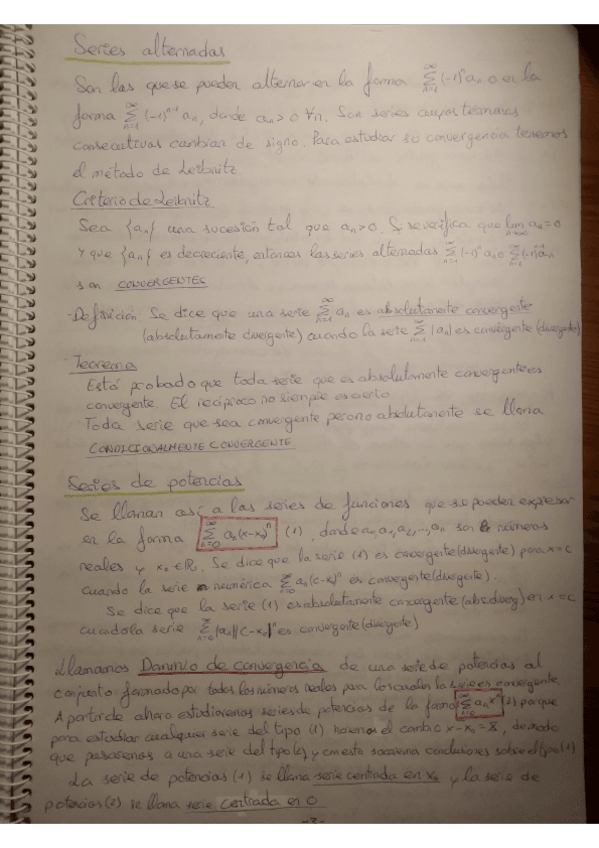 Series alternadas
Son las que se pueden alternar en la forma ∑_{n=1}^{∞} (-1)^n a_n o en la
forma ∑_{n=1}^{∞} (-1)^{n-1} a_n, donde a_n > 0 ∀n. Son series cuyos términos
consecutivos cambian de signo. Para estudiar su convergencia tenemos
el método de Leibnitz
Criterio de Leibnitz
Sea {a_n} una sucesión tal que a_n>0. Si se verifica que lim_{n→∞} a_n = 0
y que {a_n} es decreciente, entonces las series alternadas ∑_{n=1}^{∞} (-1)^n a_n o ∑_{n=1}^{∞} (-1)^{n-1} a_n
son CONVERGENTES
- Definición Se dice que una serie ∑_{n=1}^{∞} a_n es absolutamente convergente
(absolutamente divergente) cuando la serie ∑_{n=1}^{∞} |a_n| es convergente (divergente)
- Teorema
Está probado que toda serie que es absolutamente convergente es
convergente. El recíproco no siempre es cierto
Toda serie que sea convergente pero no absolutamente se llama
CONDICIONALMENTE CONVERGENTE
Series de potencias
Se llaman así a las series de funciones que se pueden expresar
en la forma ∑_{n=0}^{∞} a_n(x-x_0)^n (1), donde a_0, a_1, a_2, ..., a_n son números
reales y x_0 ∈ ℝ. Se dice que la serie (1) es convergente (divergente) para x=c
cuando la serie numérica ∑_{n=0}^{∞} a_n(c-x_0)^n es convergente (divergente).
Se dice que la serie (1) es absolutamente convergente (abs. diverg) en x=c
cuando la serie ∑_{n=0}^{∞} |a_n||c-x_0|^n es convergente (divergente)
Llamamos Dominio de convergencia de una serie de potencias al
conjunto formado por todos los números reales para los cuales la serie es convergente.
A partir de ahora estudiaremos series de potencias de la forma ∑_{n=0}^{∞} a_n x^n (2) porque
para estudiar cualquier serie del tipo (1) haremos el cambio x-x_0=X, de modo
que pasaremos a una serie del tipo (2) y con esto sacaremos conclusiones sobre el tipo (1)
La serie de potencias (1) se llama serie centrada en x_0 y la serie de
potencias (2) se llama serie centrada en 0